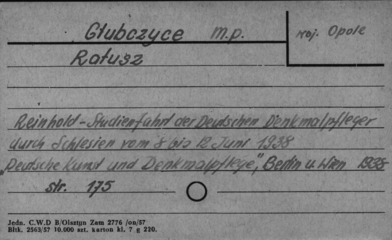 Głubczyce m.p. Woj. Opole
Ratusz
Reinhold - Studienfahrt der Deutschen Denkmalpfleger
durch Schlesien vom 8 bis 12 Juni 1938
„Deutsche Kunst und Denkmalpflege", Berlin u. Wien 1938
str. 175
Jedn. C.W.D B/Olsztyn Zam 2776 /on/57
Bltk. 2563/57 10.000 szt. karton kl. 7 g 220.